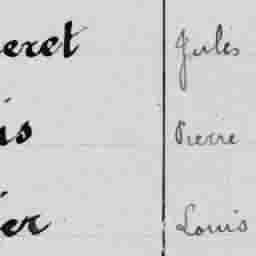 eret Jules
is Pierre
er Louis